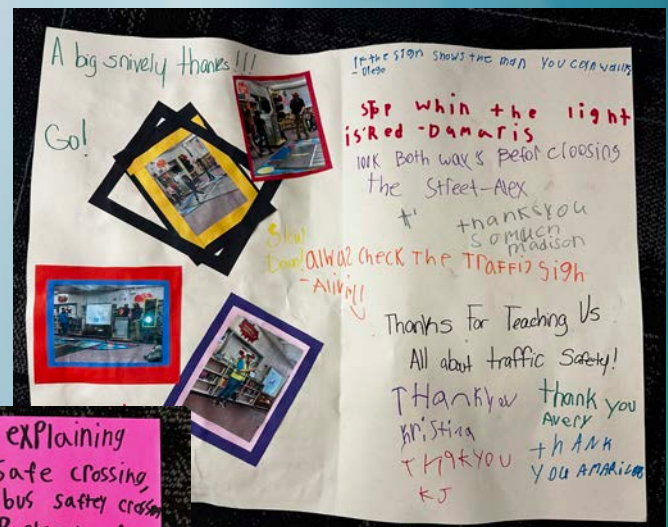 A big snively thanks!!!
Go!
Slow
Down!
If the sign shows the man you can walk
- Diego
stop whin the light
is Red - Damaris
look Both way's Befor cloosing
the Street - Alex
thanksyou
somuch
madison
alwaz check The Traffiz sigh
Thanks For Teaching Us
All about traffic Safety!
THankyou
Kristina
thank you
Avery
THqkYOU
KJ
thANK
YOU AMARI
explaining
Safe crossing,
bus saftey crossing